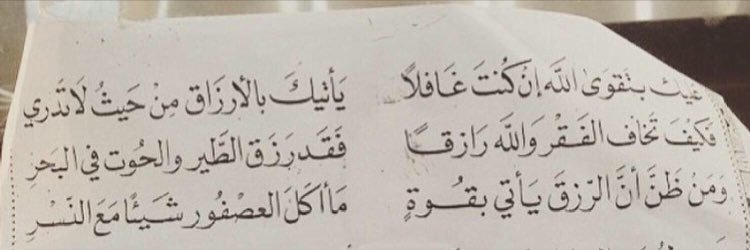 عليك بتقوى الله إن كنت غافلاً يأتيك بالأرزاق من حيث لا تدري
فكيف تخاف الفقر والله رازقاً فقد رزق الطير والحوت في البحر
ومن ظن أن الرزق يأتي بقوةٍ ما أكل العصفور شيئاً مع النسر